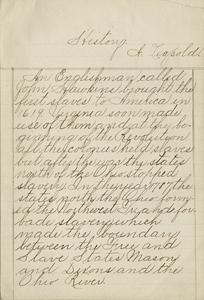 History.
A. Leopold
An Englishman called
John Hawkins brought the
first slaves to America in
1619. Virginia soon made
use of them and at the be-
ginning of the Revolution
all the colonies held slaves
but after the war the states
north of the Ohio stopped
slavery. In the year 1787 the
states north the Ohio form-
ed the Northwest
bade slavery which
made the boundary
between the Free and
Slave States Mason
and Dixons and the
Ohio River.